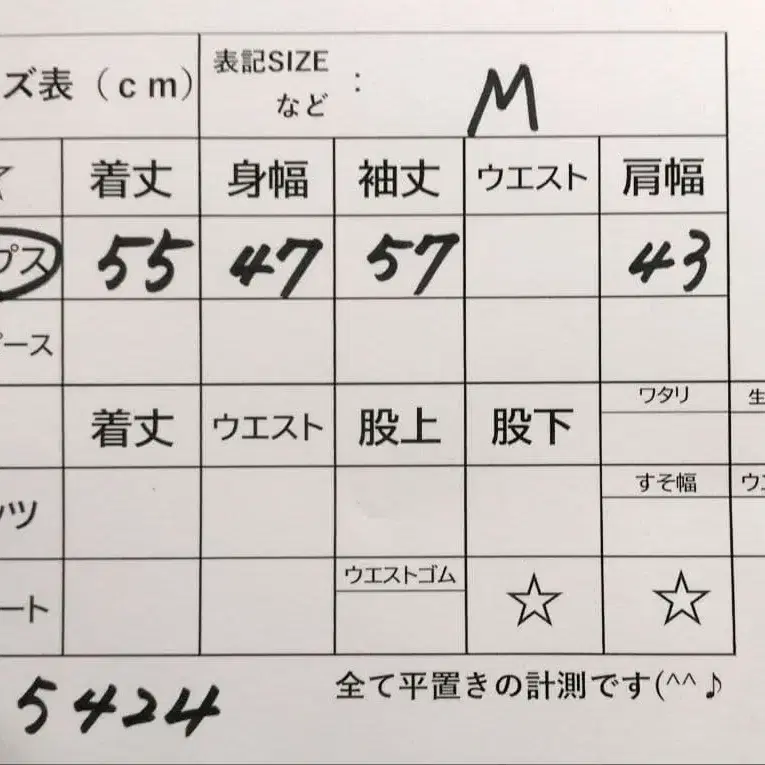 ズ表（cm） 表記SIZE など : M
☆ 着丈 身幅 袖丈 ウエスト 肩幅
プス 55 47 57 43
ピース
着丈 ウエスト 股上 股下 ワタリ
ンツ すそ幅
ート ウエストゴム ☆ ☆
5424 全て平置きの計測です(^^♪